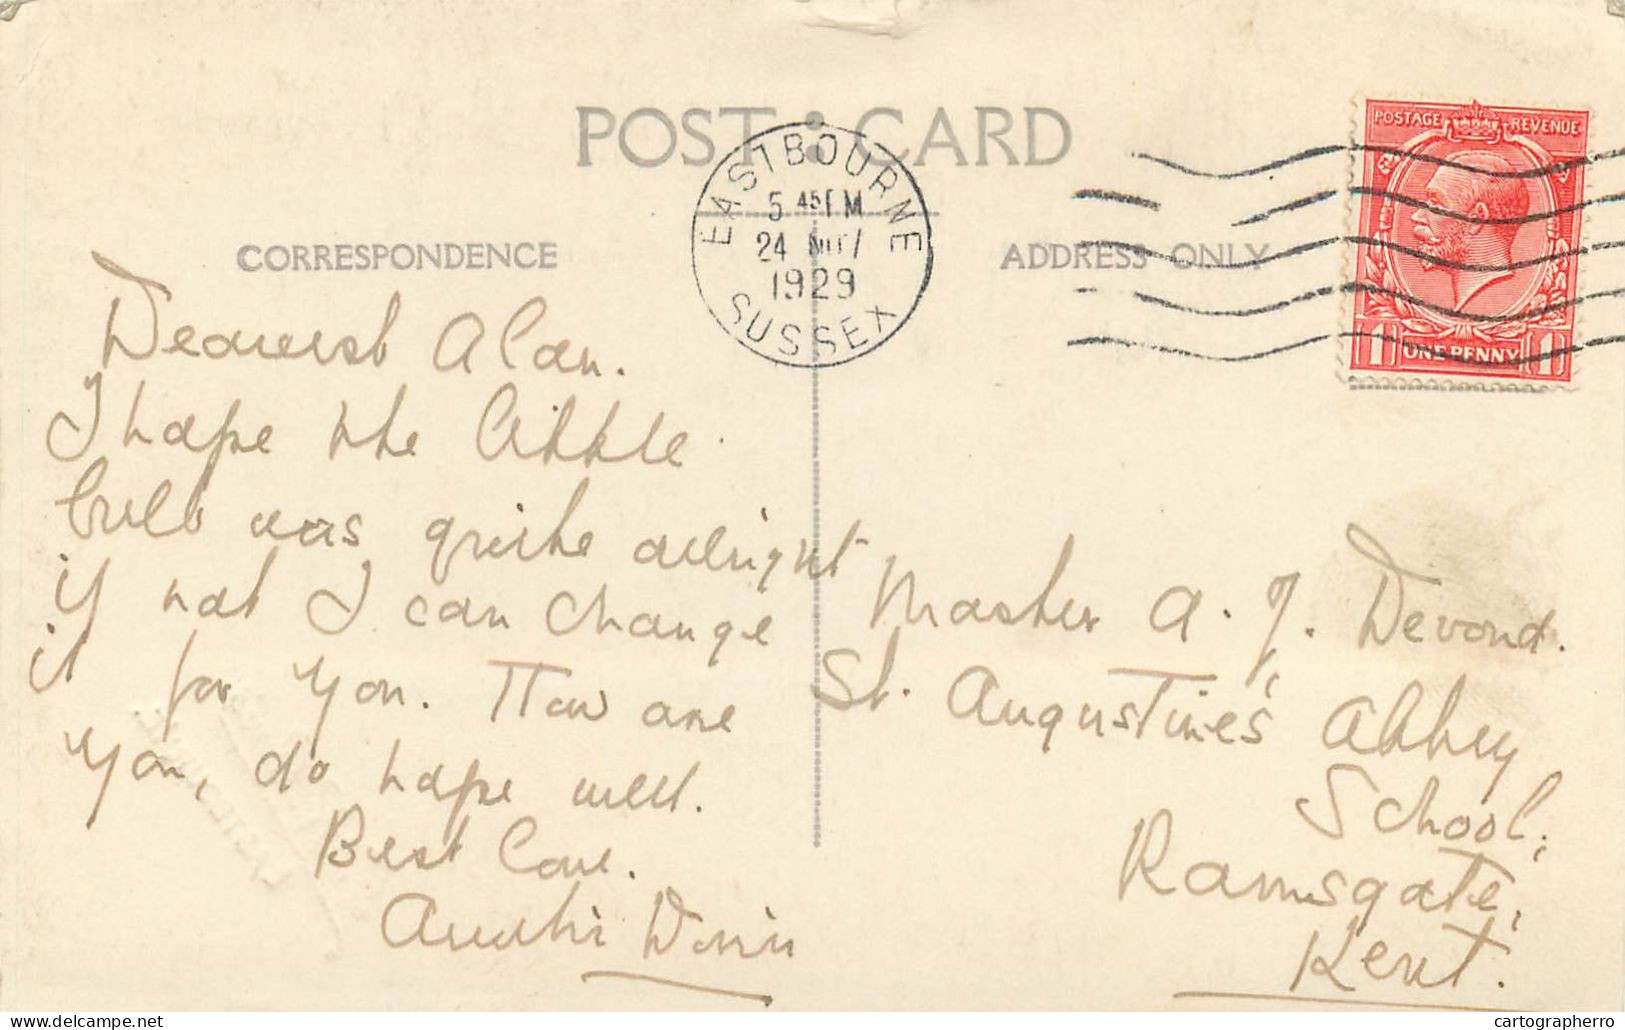 POST CARD
CORRESPONDENCE
ADDRESS ONLY
EASTBOURNE
5 45 PM
24 NOV
1929
SUSSEX
POSTAGE REVENUE
1 ONE PENNY 1
Dearest Alan.
I hope the little
bulb was quite allright
if not I can change
it for you. How are
you, do hope well.
Best Love.
Auntie
Master A. J. Devond.
St. Augustine's Abbey
School,
Ramsgate,
Kent.
cartographerro